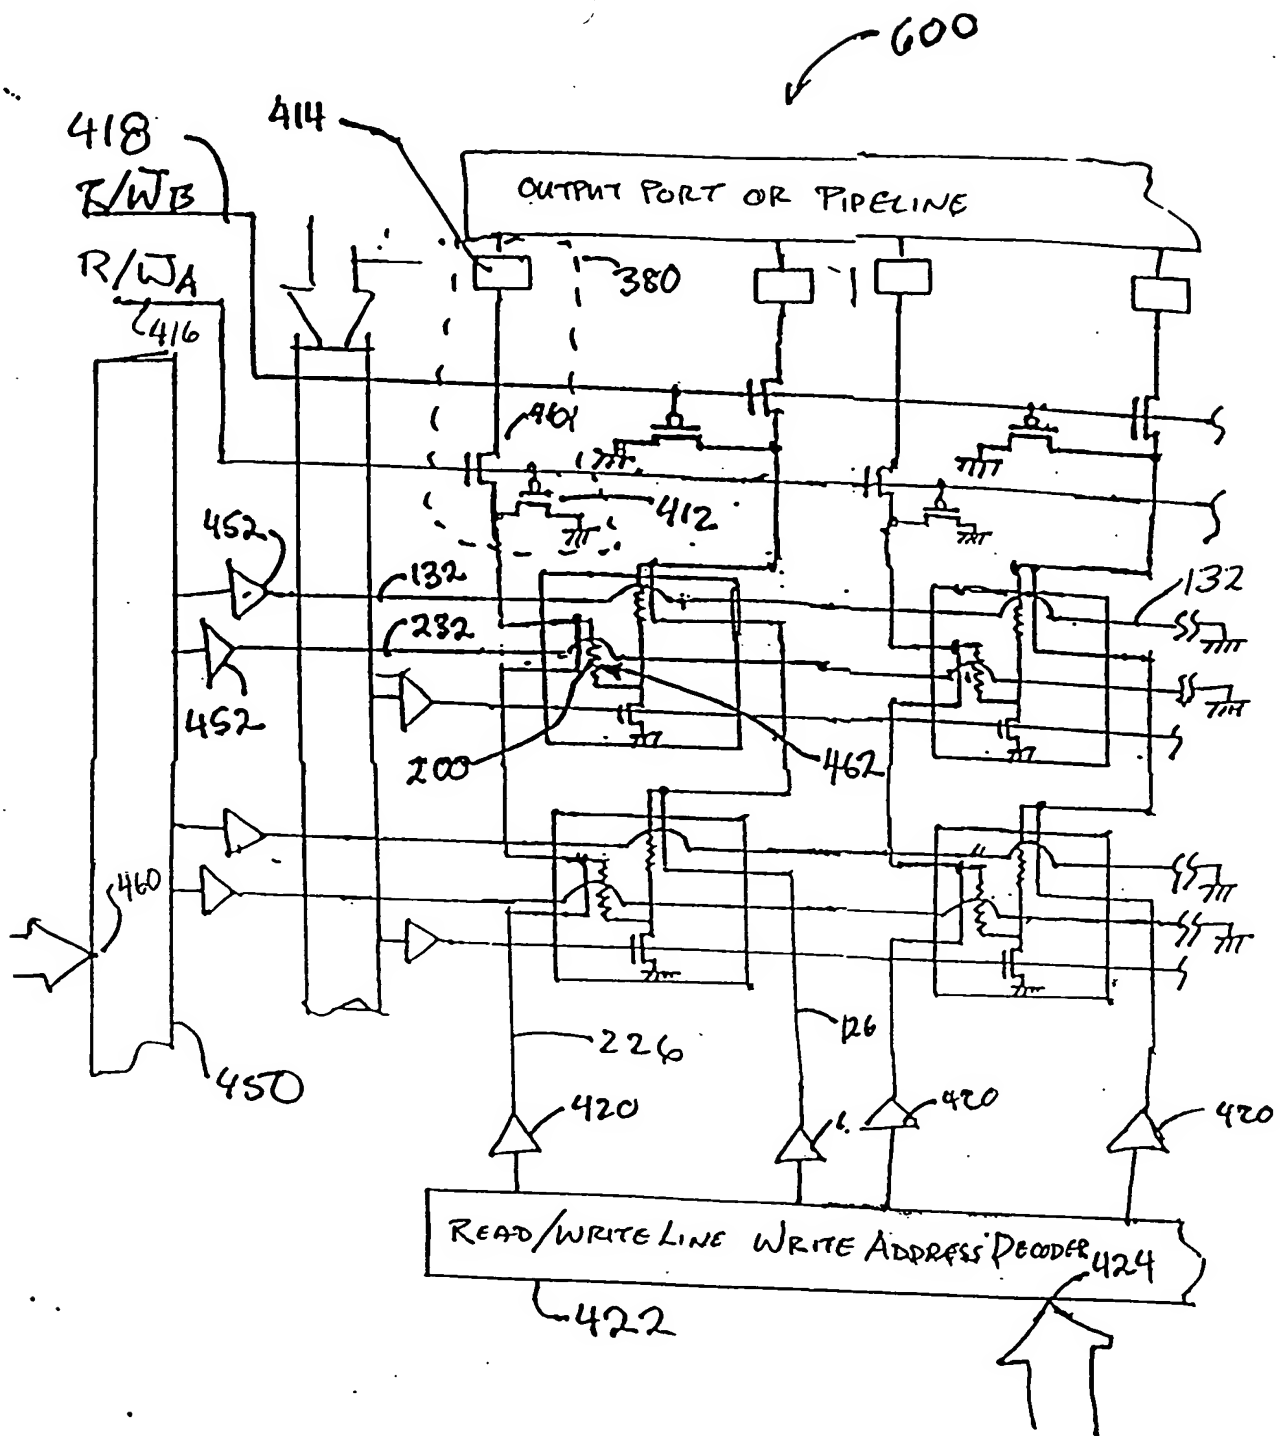 600
418
414
R/WB
OUTPUT PORT OR PIPELINE
R/WA
380
416
401
412
452
132
132
232
452
200
462
460
226
126
450
420
420
420
READ/WRITE LINE WRITE ADDRESS DECODER
424
422